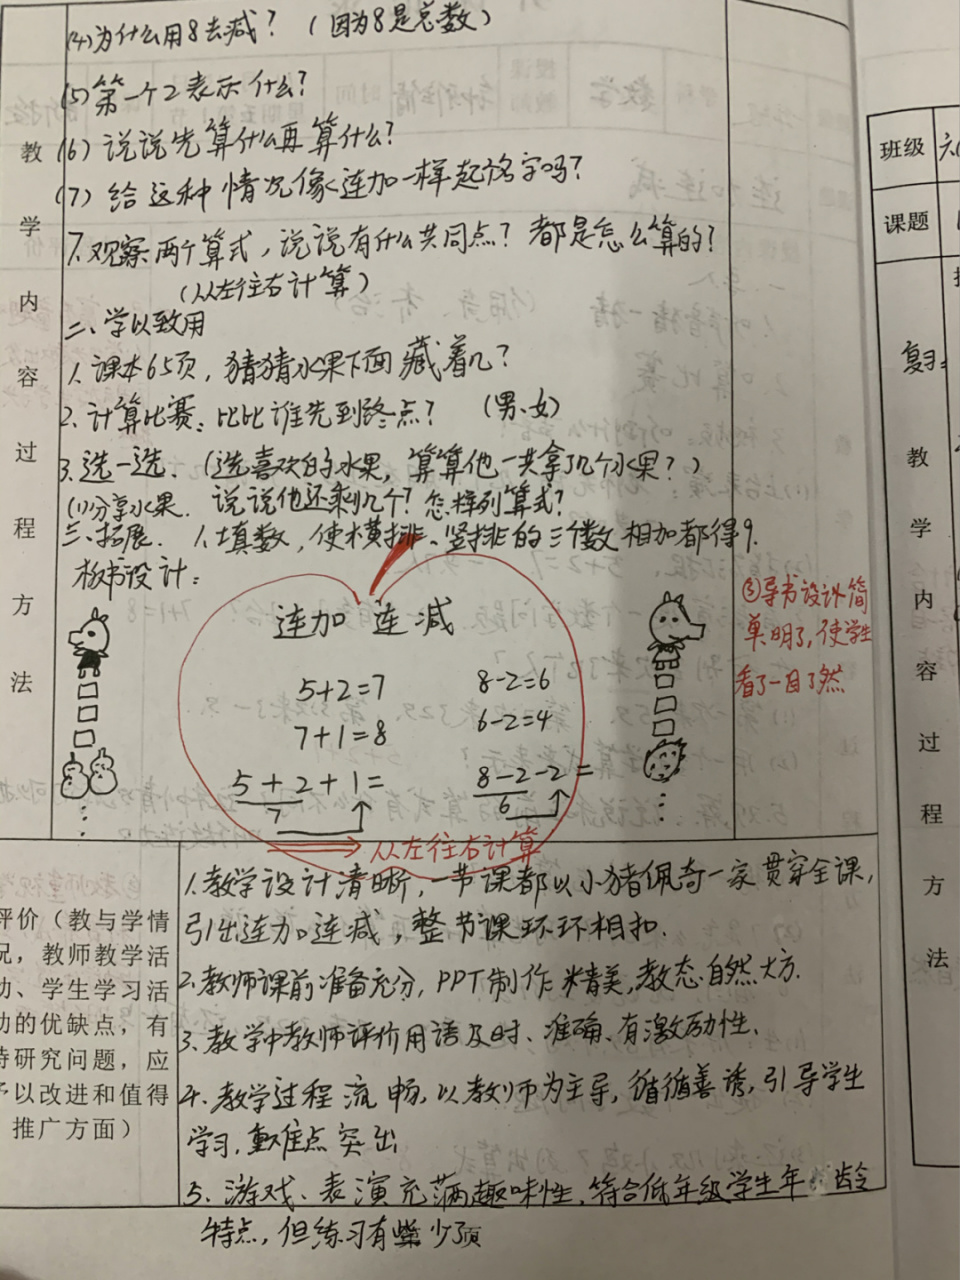 (4)为什么用8去减？（因为8是总数）
(5)第一个2表示什么？
(6)说说先算什么再算什么？
(7)给这种情况像连加一样起名字吗？
7.观察两个算式，说说有什么共同点？都是怎么算的？
（从左往右计算）
二、学以致用
1.课本65页，猜猜水果下面藏着几？
2.计算比赛：比比谁先到终点？（男、女）
3.选一选.（选喜欢的水果，算算他一共拿了几个水果？）
(1)分享水果. 说说他还剩几个？怎样列算式？
三、拓展. 1.填数，使横排、竖排的三个数相加都得9.
板书设计：
连加 连减
5+2=7 8-2=6
7+1=8 6-2=4
5+2+1= 8-2-2=
7 6
从左往右计算
教学内容过程方法
③导书设计简
单明了，使学生
看了一目了然
评价（教与学情
况，教师教学活
动、学生学习活
动的优缺点，有
待研究问题，应
予以改进和值得
推广方面）
1.教学设计清晰，一节课都以小猪佩奇一家贯穿全课，
引出连加连减，整节课环环相扣.
2.教师课前准备充分，PPT制作精美，教态自然大方.
3.教学中教师评价用语及时、准确、有激励性.
4.教学过程流畅，以教师为主导，循循善诱，引导学生
学习，重难点突出
5.游戏、表演充满趣味性，符合低年级学生年龄
特点，但练习有些少了
班级 六
课题
复习：
教学内容过程方法